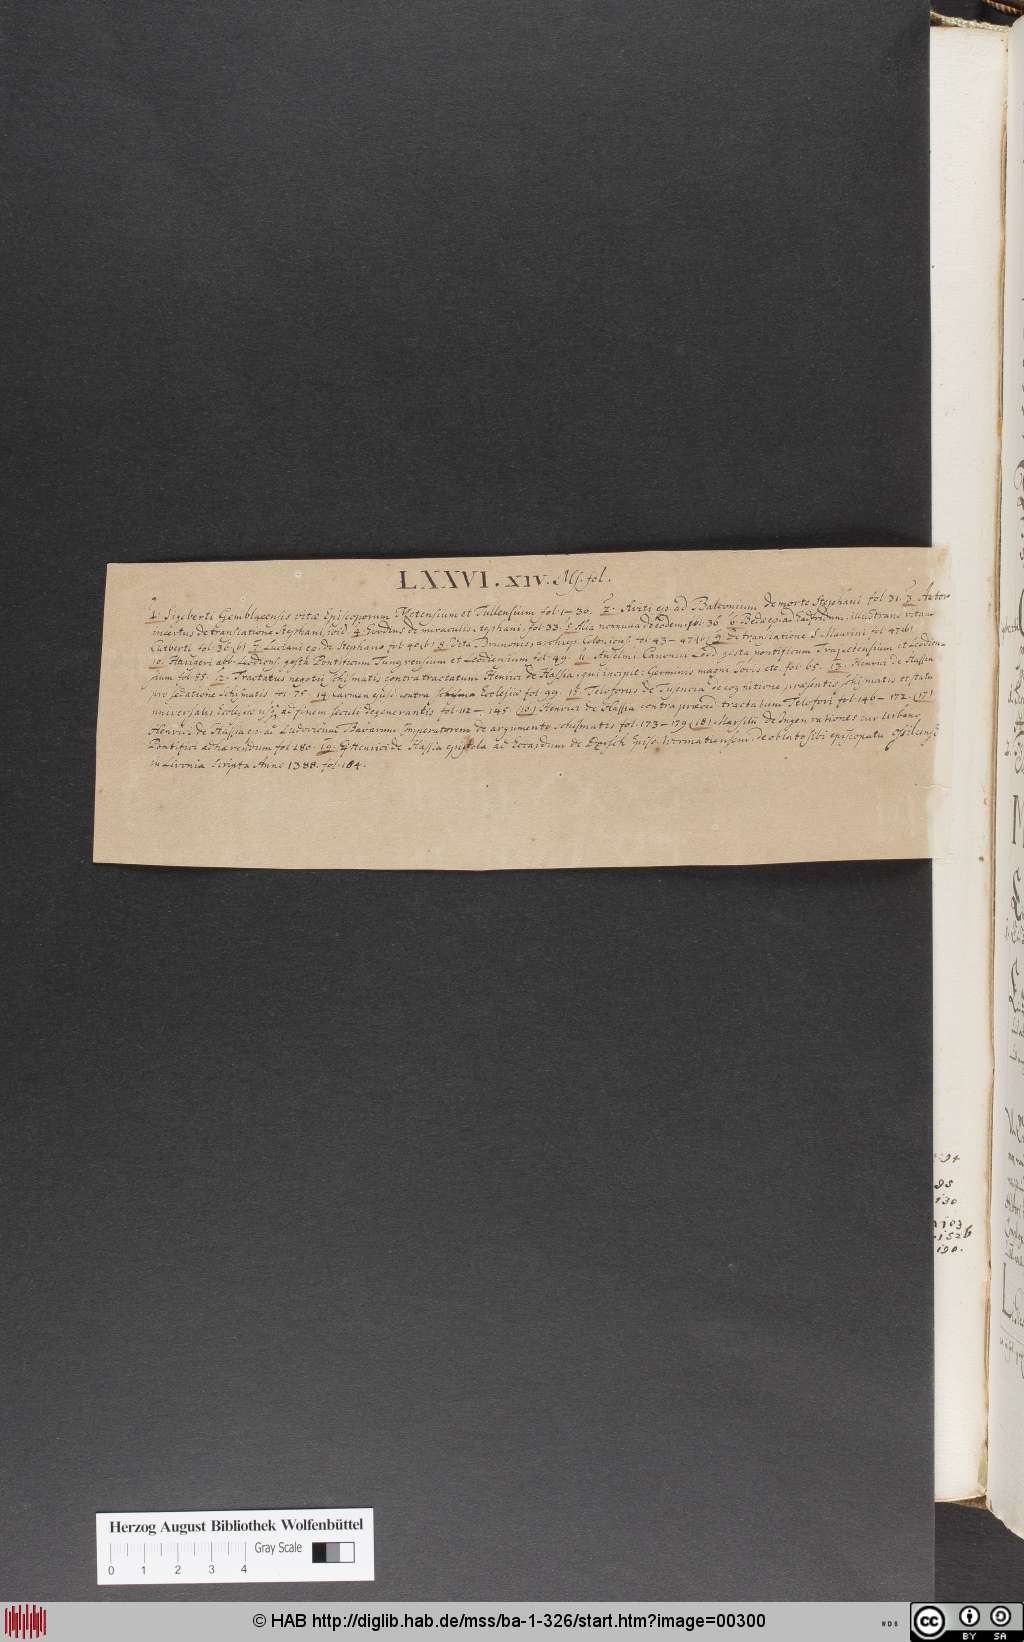 LXXVI. XIV. Ms. fol.
1. Sigeberti Gemblacensis vitæ Episcoporum Metensium et Tullensium fol. 1–30. 2. ep. ad de morte Stephani fol. 31. 3. Autor
incertus de translatione Stephani, ibid. 4. de miraculis Stephani. fol. 33. 5. Alia nonnulla de eodem fol. 36 6. Bedæ ep. ad illustrans vitam
Cutberti fol. 36 (b) 7. Luciani ep. de Stephano fol. 40 (b) 8. Vita Brunonis, archiep. Coloniens. fol. 43–47 (b) 9. De translatione S. Maurini fol. 47 (b)
10. Harigeri abb. gesta Pontificum Tungrensium et Leodiensium fol. 49. 11. Anselmi Canonici Leod. gesta pontificum Trajectensium et Leodien-
sium fol. 55. 12. Tractatus negotii schismatis contra tractatum Henrici de Hassia, qui incipit: Germinis magni Solis etc. fol. 65. 13. Henrici de Hassia
pro sedatione Schismatis fol. 75. 14. Carmen ejusd. contra Schisma Eclesiæ fol. 99. 15. Telosorus de Cusencia de cognitione præsentis schismatis et statu
universalis ecclesiæ ad finem seculi degenerantis fol. 112–145. (16) Henrici de Hassia contra præced. tractatum Telofori fol. 146–172. (17)
Henrici de Hassia ep. ad Ludovicum Bavarum Imperatorem de argumento schismatis fol. 173–179 (18) Marsilii de Ingen rationes cur Urbano
Pontifici adhærendum fol. 180. 19. Henrici de Hassia epistola ad Ecardum de Episc. Wormatiensem de oblato sibi episcopatu Osiliensi
in Livonia scripta Anno 1388. fol. 184.
94
95
130
103
152 b
190.
Herzog August Bibliothek Wolfenbüttel
Gray Scale
0 1 2 3 4
© HAB http://diglib.hab.de/mss/ba-1-326/start.htm?image=00300
WDB
cc BY SA